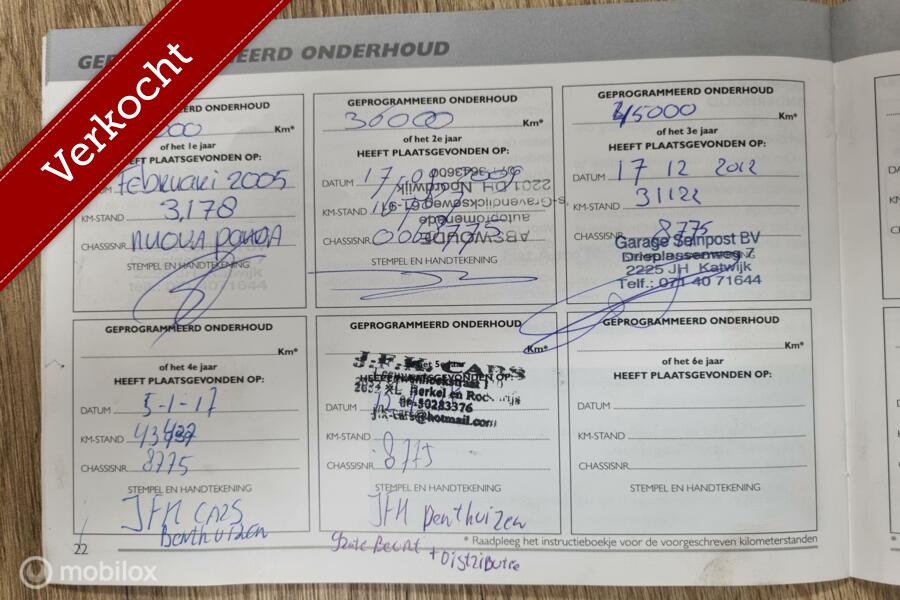 GEPROGRAMMEERD ONDERHOUD
Verkocht
ONDERHOUD
000 Km*
of het 1e jaar
HEEFT PLAATSGEVONDEN OP:
Februari 2005
KM-STAND 3,178
CHASSISNR. nuova panda
STEMPEL EN HANDTEKENING
GEPROGRAMMEERD ONDERHOUD
30000 Km*
of het 2e jaar
HEEFT PLAATSGEVONDEN OP:
DATUM 17
KM-STAND
CHASSISNR. 8775
STEMPEL EN HANDTEKENING
ABSWOUDE
autopromenade
s-Gravendijckseweg 61-91
2201 DH Noordwijk
3643600
GEPROGRAMMEERD ONDERHOUD
45000 Km*
of het 3e jaar
HEEFT PLAATSGEVONDEN OP:
DATUM 17 12 2012
KM-STAND 31122
CHASSISNR. 8775
Garage Seinpost BV
Drieplassenweg 7
2225 JH Katwijk
Telf.: 071 40 71644
GEPROGRAMMEERD ONDERHOUD
Km*
of het 4e jaar
HEEFT PLAATSGEVONDEN OP:
DATUM 5-1-17
KM-STAND
CHASSISNR. 8775
STEMPEL EN HANDTEKENING
JFK CARS
Benthuizen
GEPROGRAMMEERD ONDERHOUD
Km*
J.F.K CARS
Berkel en Rodenrijs
06-50283376
J.f.k-cars@hotmail.com
DATUM
KM-STAND
CHASSISNR. 8775
STEMPEL EN HANDTEKENING
JFK Benthuizen
Grote Beurt + Distributie
GEPROGRAMMEERD ONDERHOUD
Km*
of het 6e jaar
HEEFT PLAATSGEVONDEN OP:
DATUM
KM-STAND
CHASSISNR.
STEMPEL EN HANDTEKENING
22
* Raadpleeg het instructieboekje voor de voorgeschreven kilometerstanden
mobilox